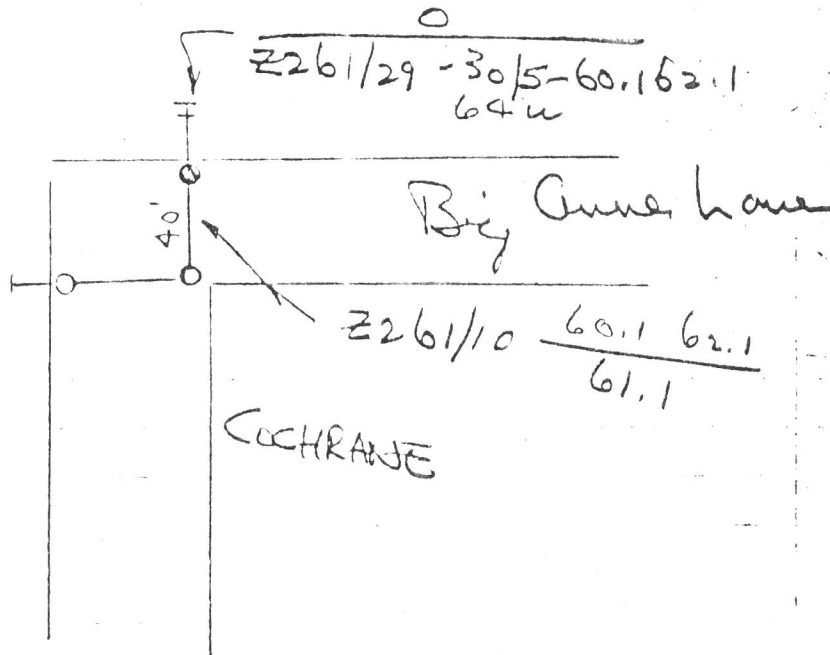 0
Z261/29-30/5-60.1 62.1
64 W
40'
Big Anne Lane
Z261/10 60.1 62.1
61.1
COCHRANE